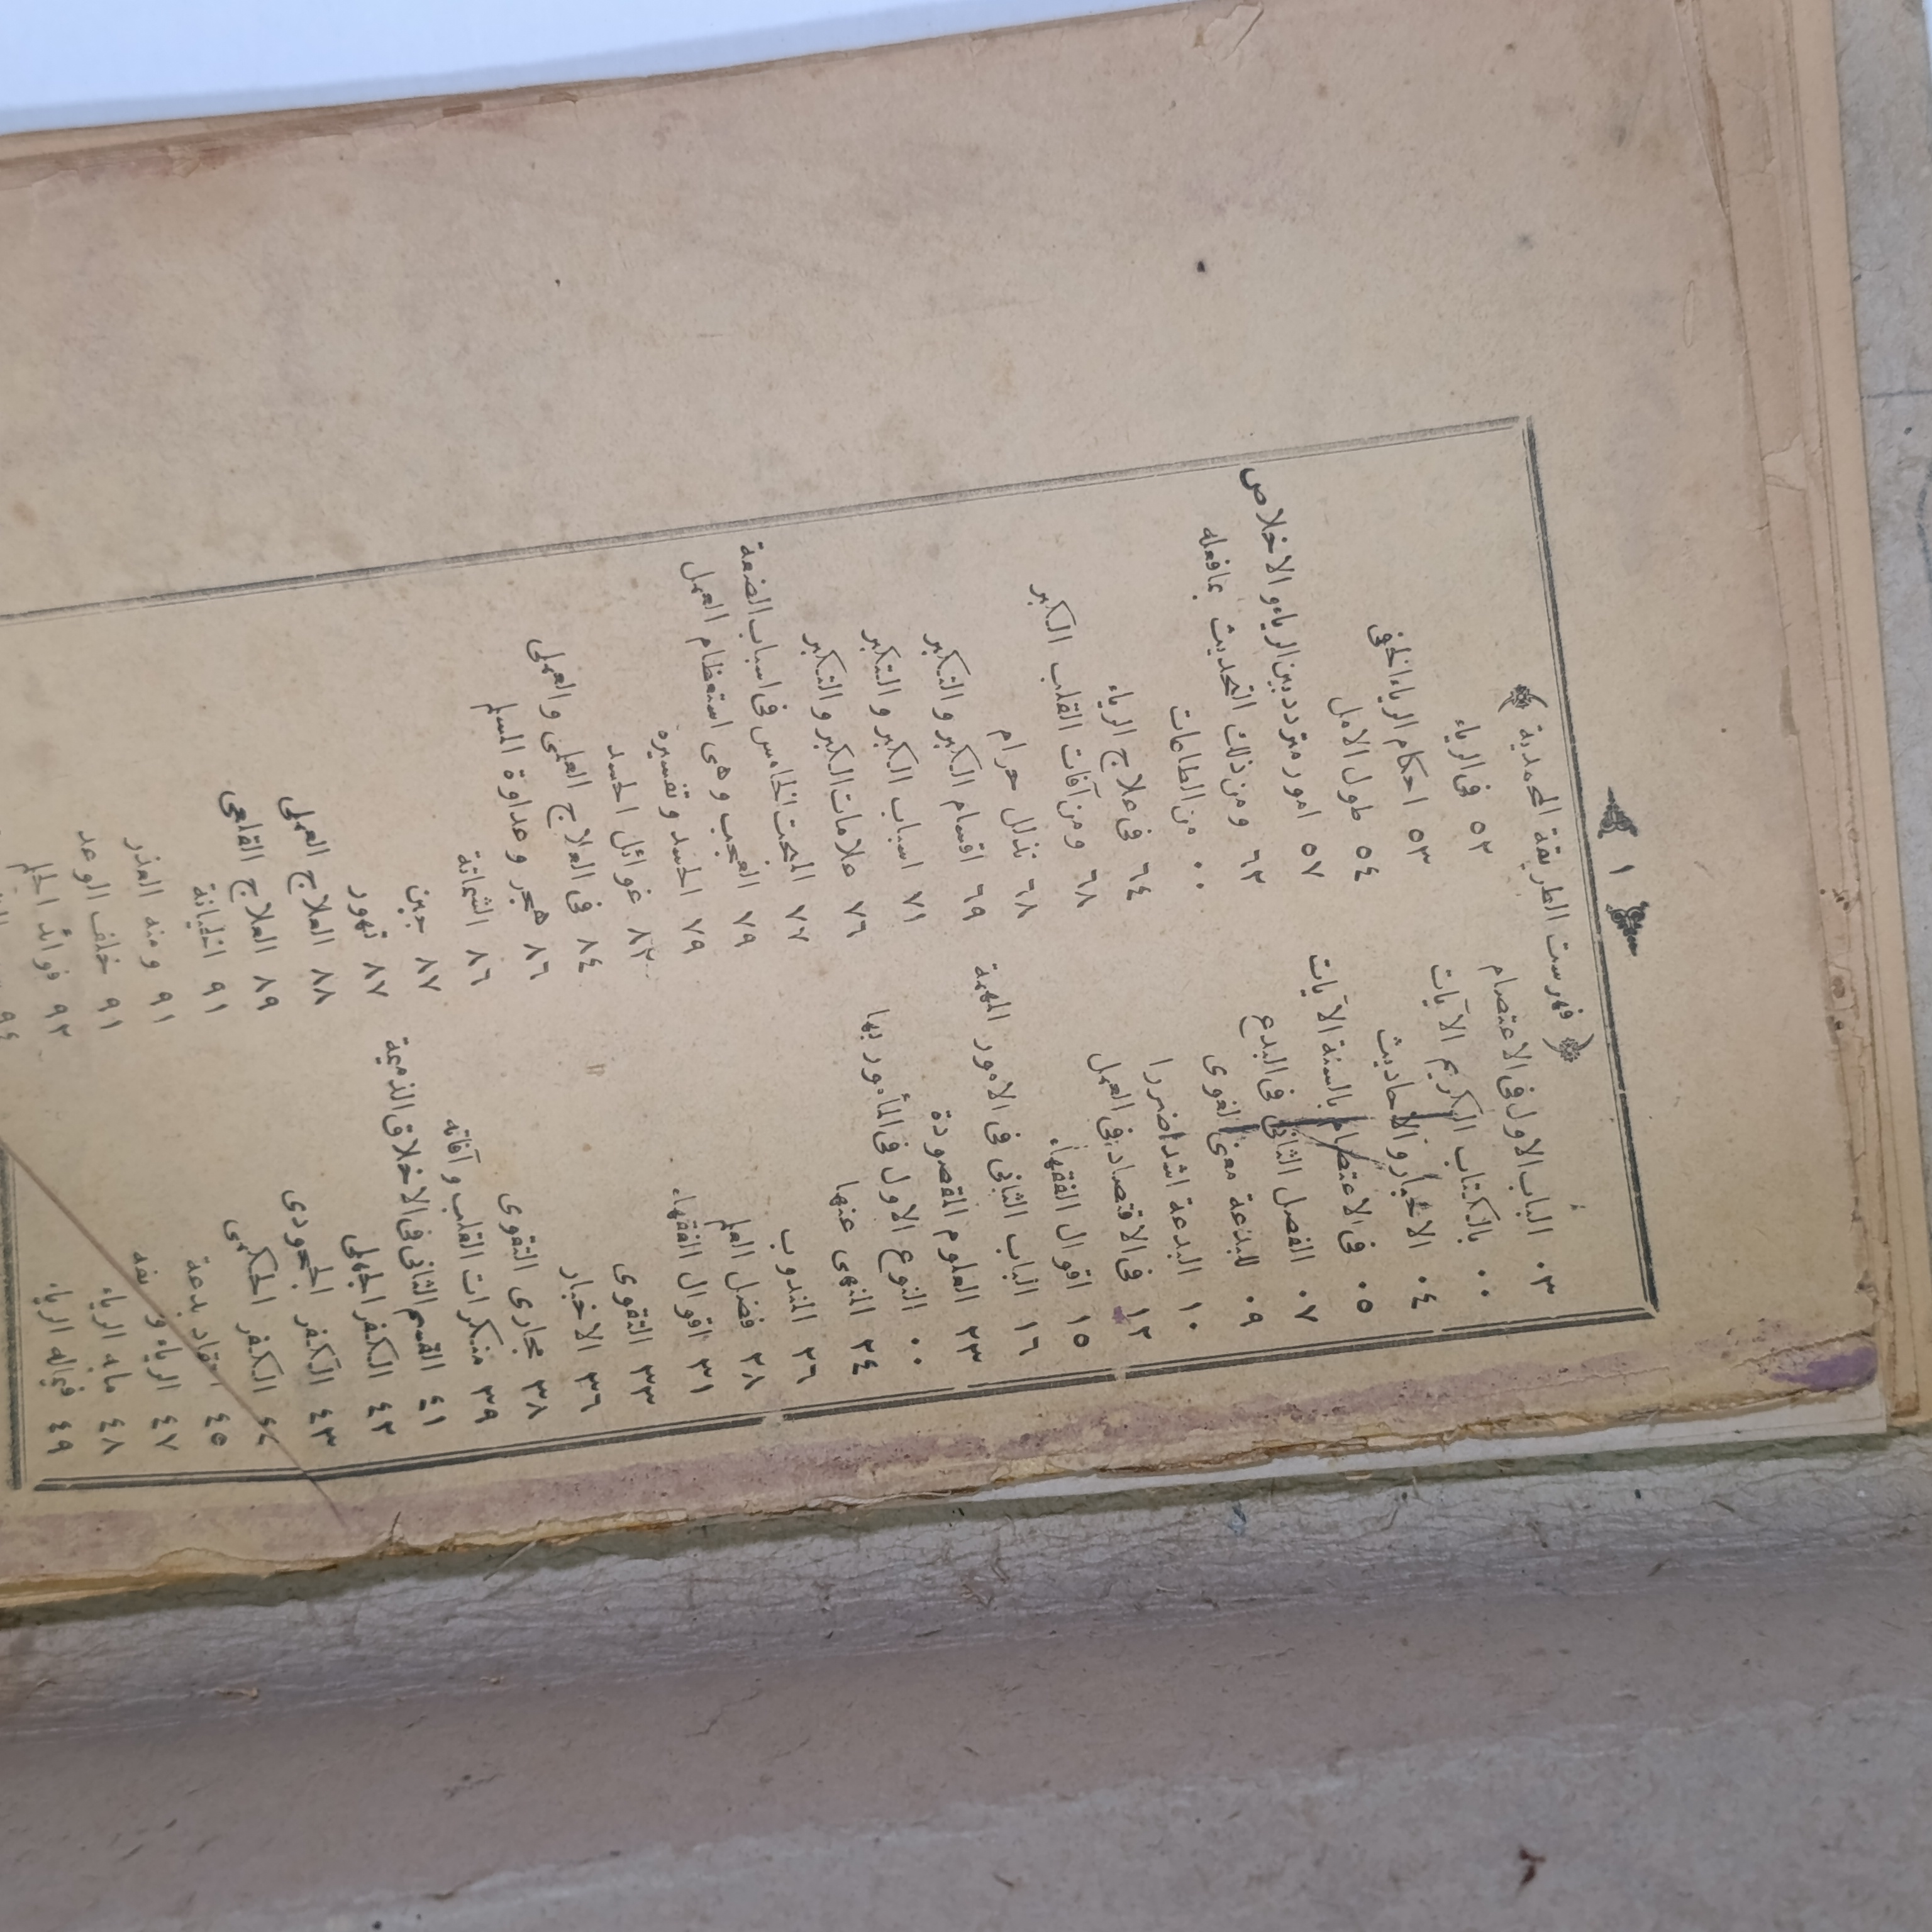 ١
﴿ فهرست الطريقة المحمدية ﴾
٠٣ الباب الاول فى الاعتصام
٠٠ بالكتاب الكريم الآيات
٠٤ الاخبار والاحاديث
٠٥ فى الاعتصام بالسنة الآيات
٠٧ الفصل الثانى فى البدع
٠٩ للبدعة معنى لغوى
١٠ البدعة اشد ضررا
١٢ فى الاقتصاد فى العمل
١٥ اقوال الفقهاء
١٦ الباب الثانى فى الامور المهمة
٢٣ العلوم المقصودة
٠٠ النوع الاول فى المأمور بها
٢٤ المنهى عنها
٢٦ المندوب
٢٨ فضل العلم
٣١ اقوال الفقهاء
٣٣ التقوى
٣٦ الاخبار
٣٨ مجارى التقوى
٣٩ منكرات القلب وآفاته
٤١ القسم الثانى فى الاخلاق الذميمة
٤٢ الكفر الجهلى
٤٣ الكفر الجحودى
٤٤ الكفر الحكمى
٤٥ بدعة
٤٧ الرياء
٤٨ مابه الرياء
٤٩ فيماله الرياء
٥٢ فى الرياء
٥٣ احكام الرياء الخفى
٥٤ طول الامل
٥٧ امور مترددبين الرياء والاخلاص
٦٢ ومن ذلك التحديث بمافعله
٠٠ من الطاعات
٦٤ فى علاج الرياء
٦٨ ومن آفات القلب الكبر
٦٨ تذلل حرام
٦٩ اقسام الكبر والتكبر
٧١ اسباب الكبر والتكبر
٧٦ علامات الكبر والتكبر
٧٧ المبحث الخامس فى اسباب الضعة
٧٩ العجب وهى استعظام العمل
٧٩ الحسد وتفسيره
٨٢ غوائل الحسد
٨٤ فى العلاج العلمى والعملى
٨٦ هجر وعداوة المسلم
٨٦ الشماتة
٨٧ جبن
٨٧ تهور
٨٨ العلاج العملى
٨٩ العلاج القلعى
٩١ الخيانة
٩١ ومنه الغدر
٩١ خلف الوعد
٩٢ فوائد الحلم
٩٤